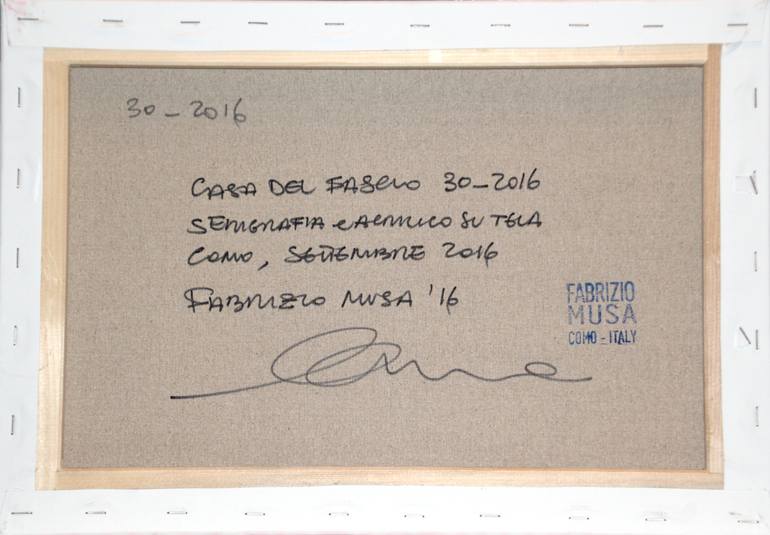 30-2016
CASA DEL FASCIO 30-2016
SERIGRAFIA e ACRILICO SU TELA
COMO, SETTEMBRE 2016
FABRIZIO MUSA '16
FABRIZIO
MUSA
COMO - ITALY